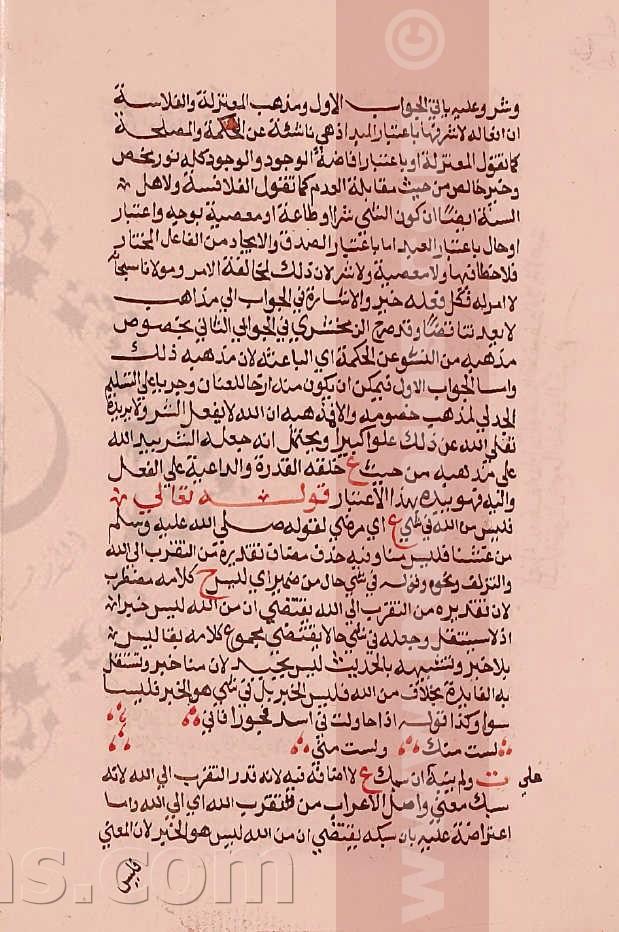 وشر وعليه ياتي الجواب الاول ومذهب المعتزلة والفلاسة
ان افعاله لا شر فيها باعتبار المبدا اذ هي ناشئة عن الحكمة والمصلحة
كما تقول المعتزلة او باعتبار افاضة الوجود والوجود كله نور محض
وخير خالص من حيث مقابلة العدم كما تقول الفلاسفة ولاهل
السنة ايضا ان كون الشي شرا او طاعة او معصية بوجه واعتبار
او حال باعتبار العبد اما باعتبار الصدق والايجاد من الفاعل المختار
فلا حظ فيها ولا معصية ولا شر لان ذلك لمخالفة الامر ومولانا سبحانه
لا امر له فكل فعله خير والاشارة في الجواب الى مذاهب
لا يعد تناقضا وقد صرح الزمخشري في الجواب الثاني بخصوص
مذهبه من النشو عن الحكمة اي الباعثة لان مذهبه ذلك
واما الجواب الاول فيمكن ان يكون منه ارخا للعنان وجريا على التسليم
الجدلي لمذهب خصومه والا فمذهبه ان الله لا يفعل الشر ولا يريده
تعالى الله عن ذلك علوا كبيرا ويحتمل انه جعله الشر بيد الله
على مذهبه من حيث خلقه القدرة والداعية على الفعل
واليه فهو بيده بهذا الاعتبار قوله تعالى
فليس من الله في شي ع اي مرضي لقوله صلى الله عليه وسلم
من غشنا فليس منا وفيه حذف مضاف تقديره من التقرب الى الله
والتزلف ونحوه وقوله في شي حال من ضمير اي ليس ح كلامه مضطرب
لان تقديره من التقرب الى الله يقتضي ان من الله ليس خبرا
اذ لا يستقل وجعله في شي حالا يقتضي مجموع كلامه بقا ليس
بلا خبر وتشبيهه بالحديث ليس بجيد لان منا خبر وتستقل
به الفايدة بخلاف من الله فليس الخبر بل في شي هو الخبر فليسا
سوا وكذا قوله اذا حاولت في اسد فجورا فاني
لست منك ولست مني
ت ولم يبينه ان سبك ع لا اضافة فيه لانه قدر التقرب الى الله لانه
على
سبك معنى واصل الاعراب من التقرب الله اي الى الله واما
اعتراضه عليه بان سبكه يقتضي ان من الله ليس هو الخبر لان المعنى
فليس